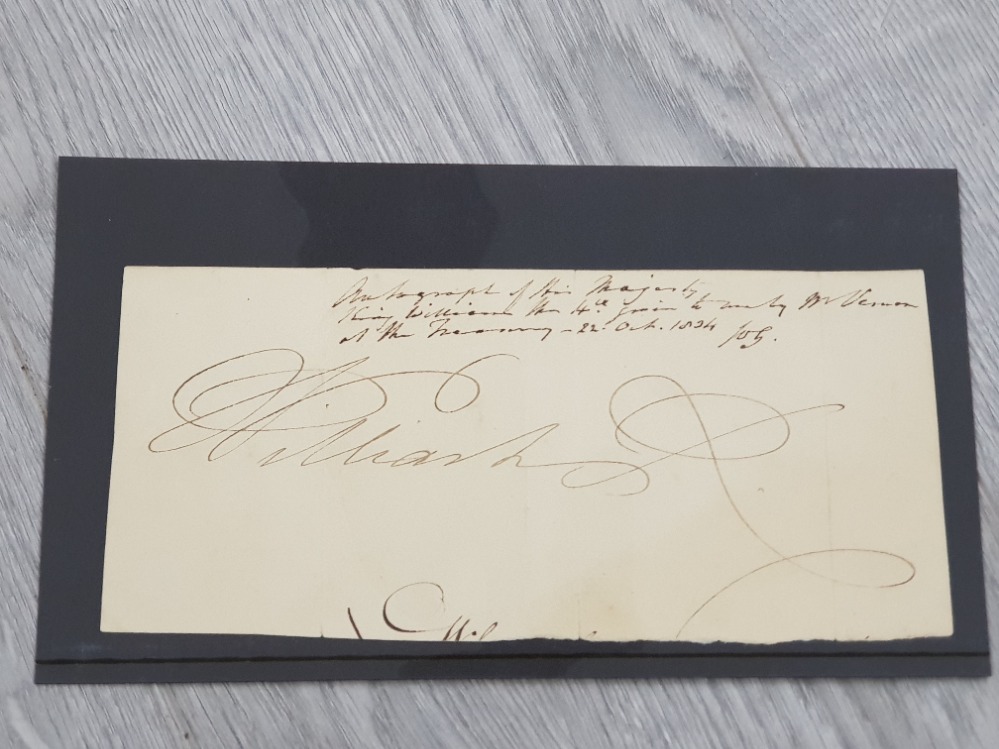 Autograph of His Majesty
King William the 4th given to me by Mr Vernon
at the Treasury – 22 Oct. 1834
William R